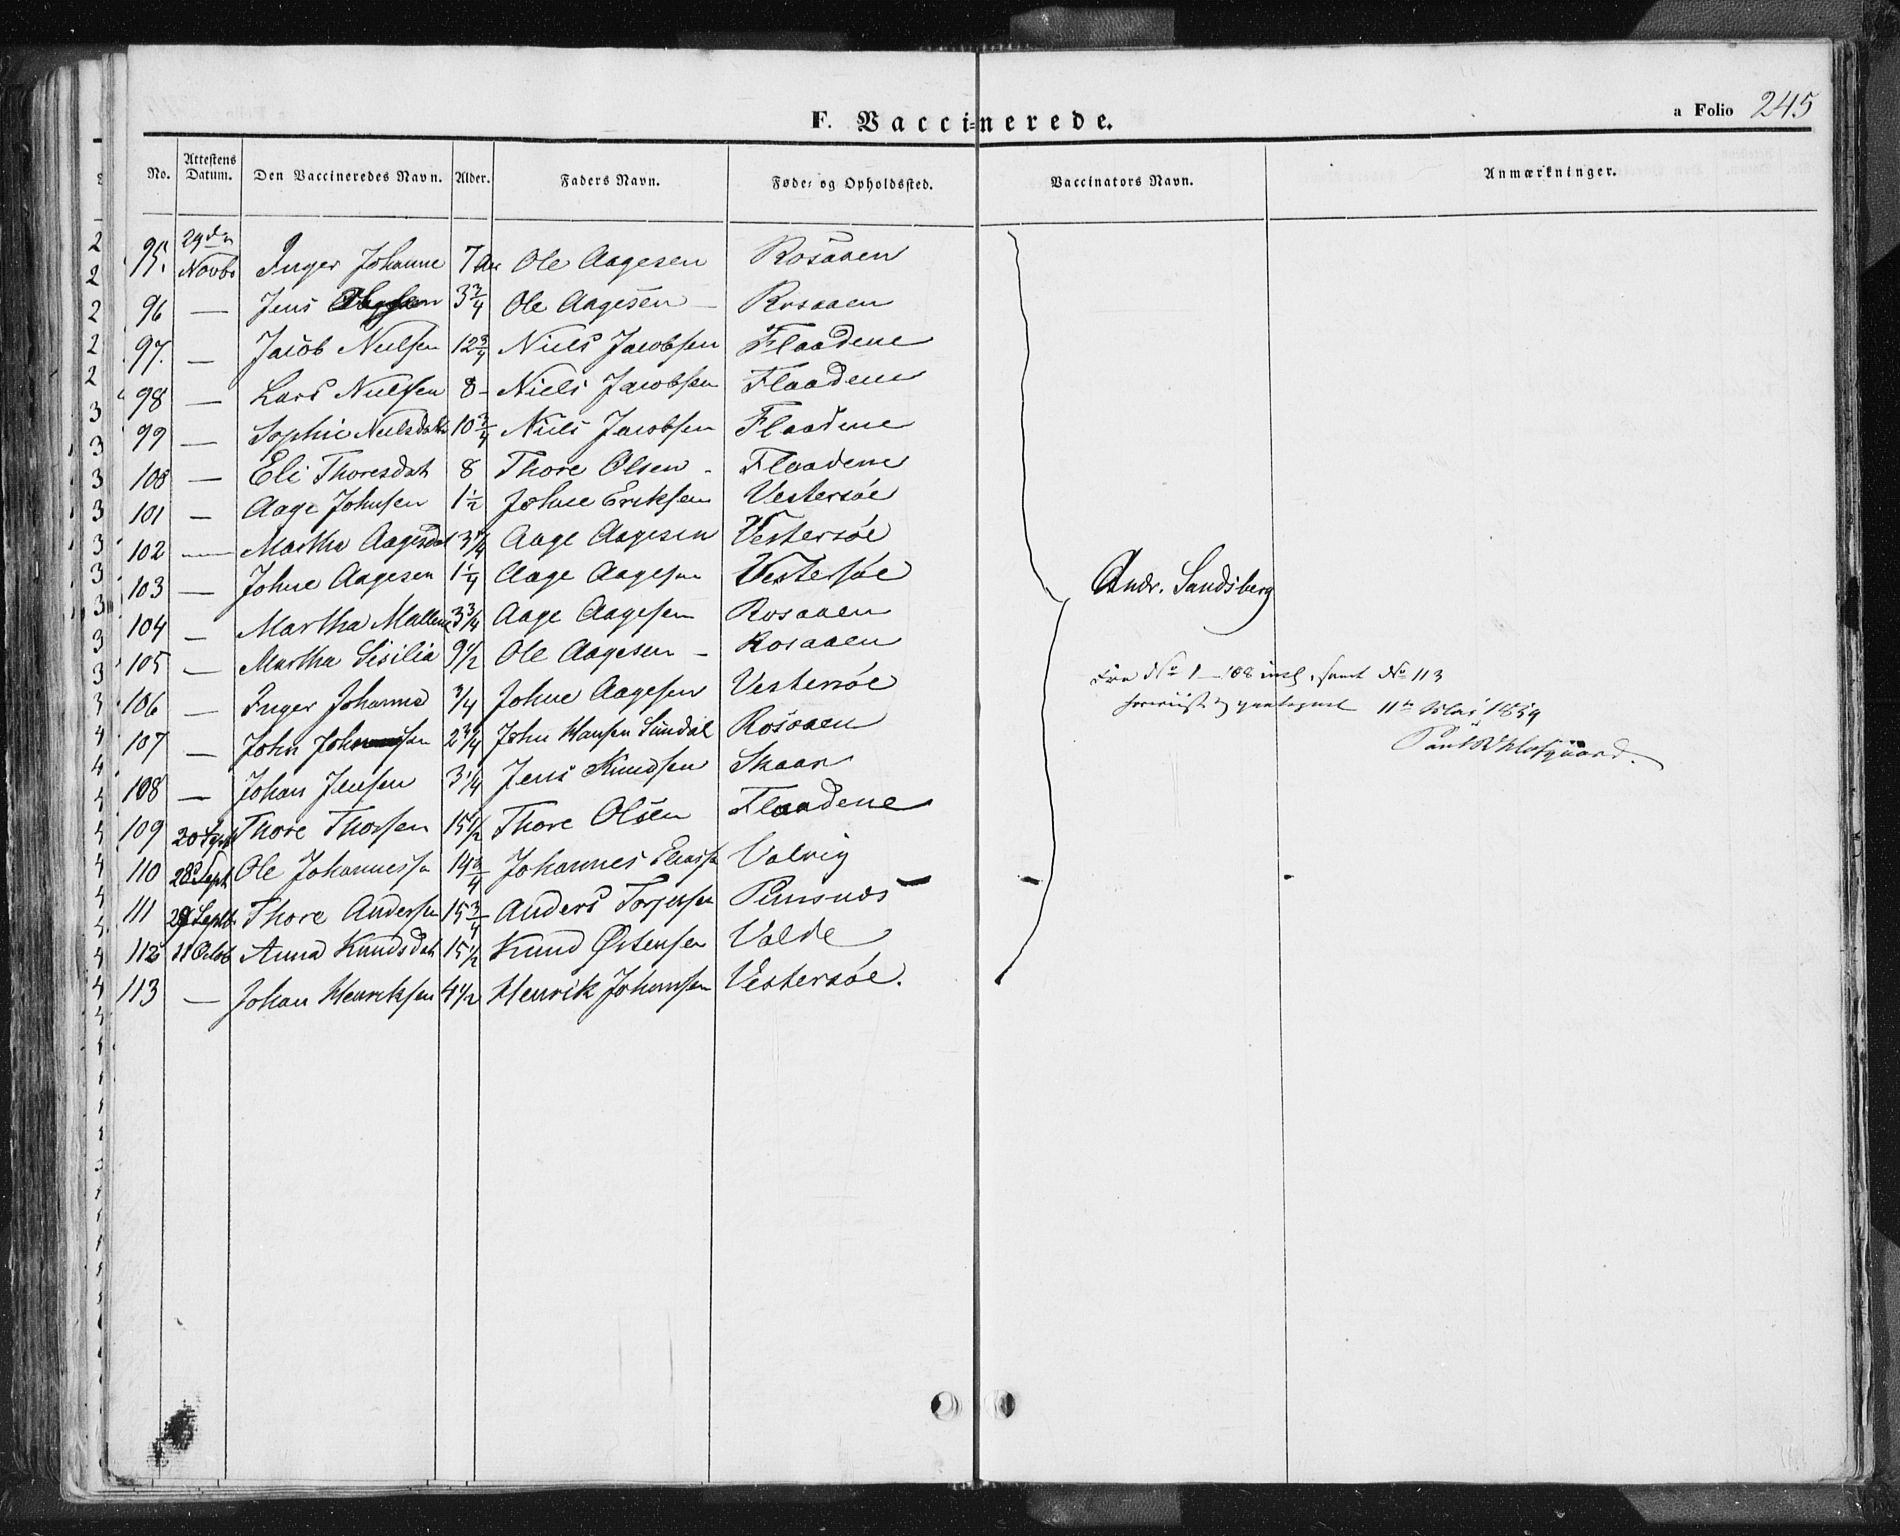 F. Vaccinerede.
a Folio 245
No. Attestens Datum. Den Vaccineredes Navn. Alder. Faders Navn. Føde- og Opholdssted. Vaccinators Navn. Anmærkninger.
95. 29de Novbr Inger Johanne 7 Aar Ole Aagesen Rosaaen
96 — Jens 3 3/4 Ole Aagesen — Rosaaen
97. — Jacob Nielsen 12 3/4 Niels Jacobsen Flaadene
98 — Lars Nielsen 8 - Niels Jacobsen Flaadene
99 — Sophie Nielsdatt 10 3/4 Niels Jacobsen Flaadene
100 — Eli Thoresdatt 8 Thore Olsen - Flaadene
101 — Aage Johnsen 1 1/2 Johne Eriksen Vestersøe
102 — Martha Aagesdat 3 1/4 Aage Aagesen Vestersøe
103 — Johne Aagesen 1 1/4 Aage Aagesen Vestersøe
104 — Martha Mallene 3 3/4 Aage Aagesen Rosaaen
105 — Martha Sisilia 9 1/2 Ole Aagesen — Rosaaen
106 — Inger Johanna 3/4 Johne Aagesen Vestersøe
107 — John 2 3/4 John Hansen Sundal Rosaaen
108 — Johan Jensen 3 1/4 Jens Knudsen Skaar
109 20 Sept Thore Thorsen 15 1/2 Thore Olsen Flaadene
110 28 Sept Ole Johannessen 14 3/4 Johannes Eliassen Valvig
111 29 Septb Thore Andersen 15 3/4 Anders Torjersen
112 11 Octob Anna Knudsdatt 15 1/2 Knud Østensen Valde
113 — Johan Henriksen 4 1/2 Henrik Johansen Vestersøe.
Andr. Sandsberg
Fra No 1 — 108 incl, samt No 113
11te Mai 1859